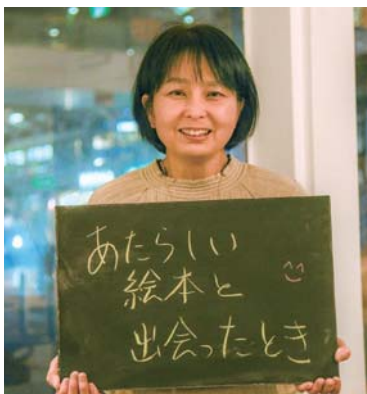 あたらしい
絵本と
出会ったとき